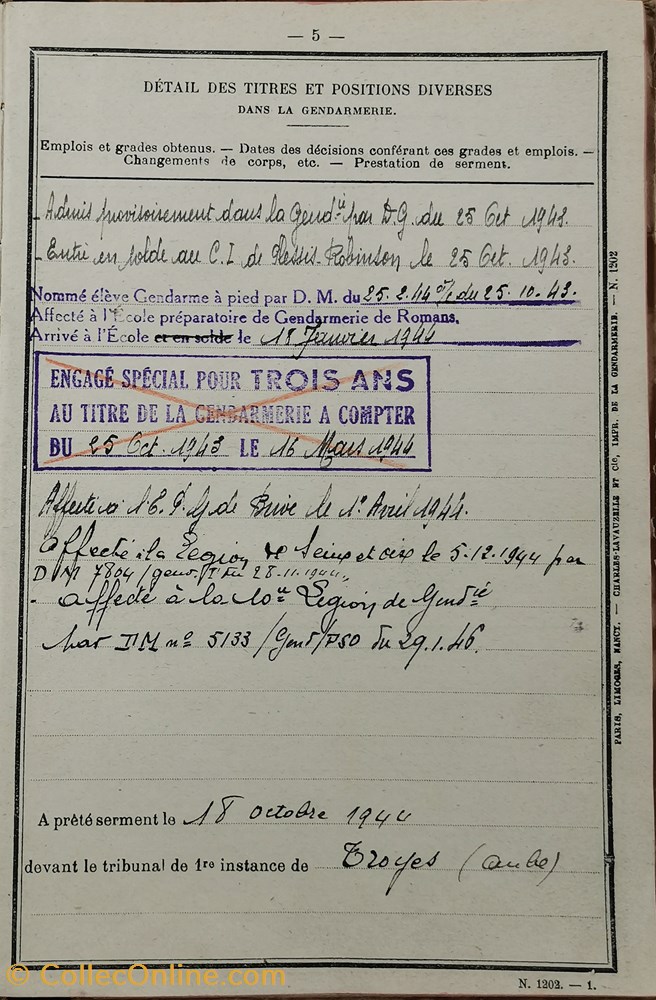 — 5 —
DÉTAIL DES TITRES ET POSITIONS DIVERSES
DANS LA GENDARMERIE.
Emplois et grades obtenus. — Dates des décisions conférant ces grades et emplois. —
Changements de corps, etc. — Prestation de serment.
- Admis provisoirement dans la Gendie par D.G. du 25 Oct 1943.
- Entré en solde au C.I. de Plessis-Robinson le 25 Oct. 1943.
Nommé élève Gendarme à pied par D. M. du 25.2.44 % du 25.10.43.
Affecté à l'École préparatoire de Gendarmerie de Romans.
Arrivé à l'École et en solde le 18 Janvier 1944
ENGAGÉ SPÉCIAL POUR TROIS ANS
AU TITRE DE LA GENDARMERIE A COMPTER
DU 25 Oct. 1943 LE 16 Mars 1944
Affecté à l'E.P.G de Brive le 1er Avril 1944.
affecté à la Légion de Seine et Oise le 5.12.1944 par
DM 7804/gend.T du 28.11.1944.
- affecté à la 10e Légion de Gendie
par DM no 5133/Gend/PSO du 29.1.46.
A prêté serment le 18 octobre 1944
devant le tribunal de 1re instance de Troyes (aube)
PARIS, LIMOGES, NANCY. — CHARLES-LAVAUZELLE ET CIE, IMPR. DE LA GENDARMERIE. — N. 1202
N. 1202. — 1.
© CollecOnline.com